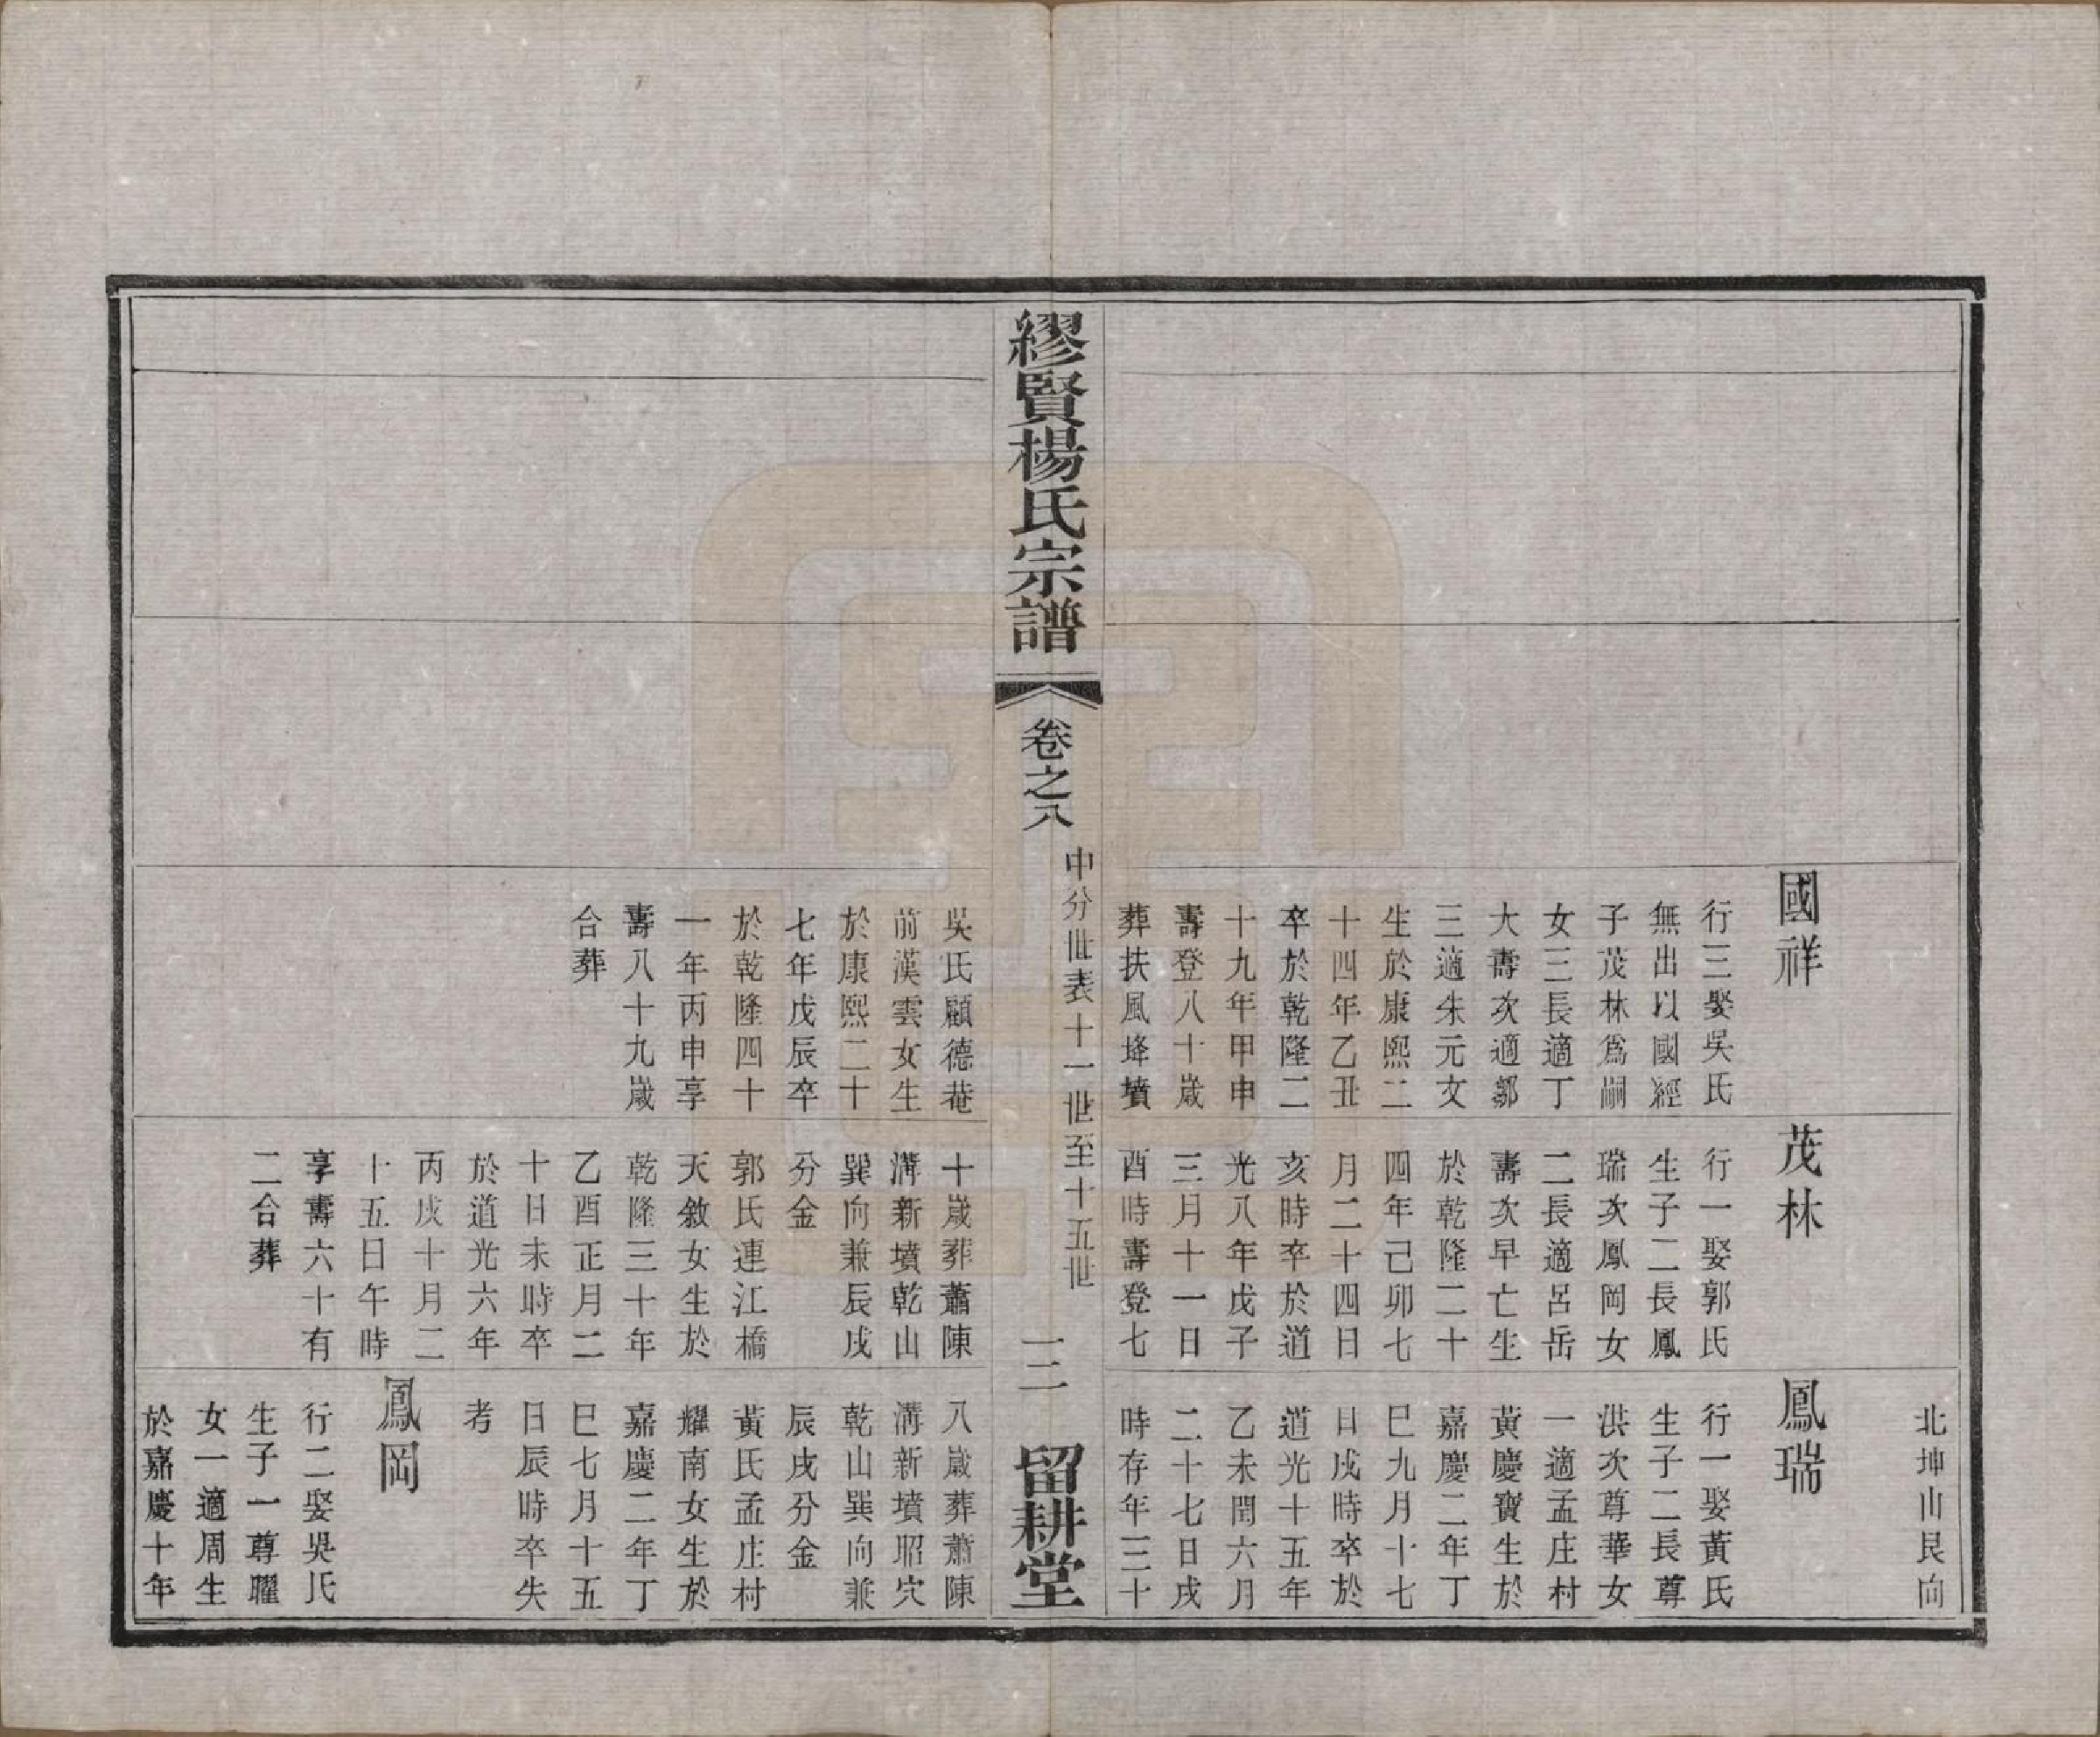 北坤山艮向
國祥
行三娶吳氏
無出以國經
子茂林爲嗣
女三長適丁
大壽次適鄒
三適朱元文
生於康熙二
十四年乙丑
卒於乾隆二
十九年甲申
壽登八十歲
葬扶風垟墳
茂林
行一娶郭氏
生子二長鳳
瑞次鳳岡女
二長適呂岳
壽次早亡生
於乾隆二十
四年己卯七
月二十四日
亥時卒於道
光八年戊子
三月十一日
酉時壽登七
鳳瑞
行一娶黃氏
生子二長尊
洪次尊華女
一適孟庄村
黃慶寶生於
嘉慶二年丁
巳九月十七
日戌時卒於
道光十五年
乙未閏六月
二十七日戌
時存年三十
繆賢楊氏宗譜
卷之八
中分世表十一世至十五世
一二
留耕堂
吳氏顧德巷
前漢雲女生
於康熙二十
七年戊辰卒
於乾隆四十
一年丙申享
壽八十九歲
合葬
十歲葬蕭陳
溝新墳乾山
巽向兼辰戌
分金
郭氏連江橋
天敘女生於
乾隆三十年
乙酉正月二
十日未時卒
於道光六年
丙戌十月二
十五日午時
享壽六十有
二合葬
八歲葬蕭陳
溝新墳昭穴
乾山巽向兼
辰戌分金
黃氏孟庄村
耀南女生於
嘉慶二年丁
巳七月十五
日辰時卒失
考
鳳岡
行二娶吳氏
生子一尊耀
女一適周生
於嘉慶十年